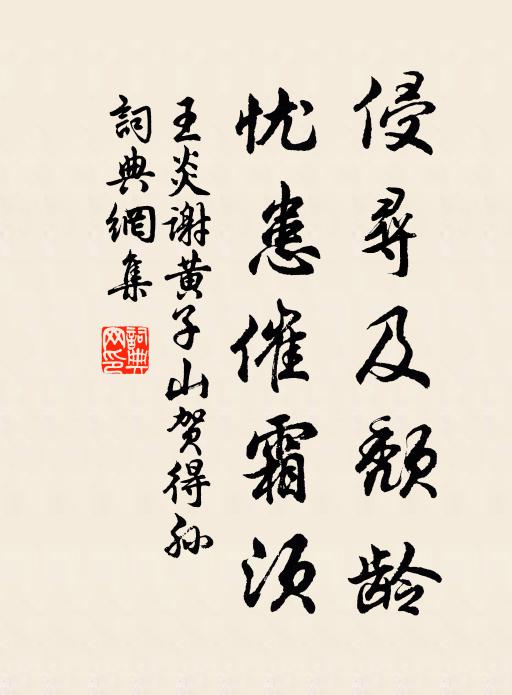 侵寻及颓龄
忧患催霜须
王炎谢黄子山贺得孙
詞典網集
詞典網印